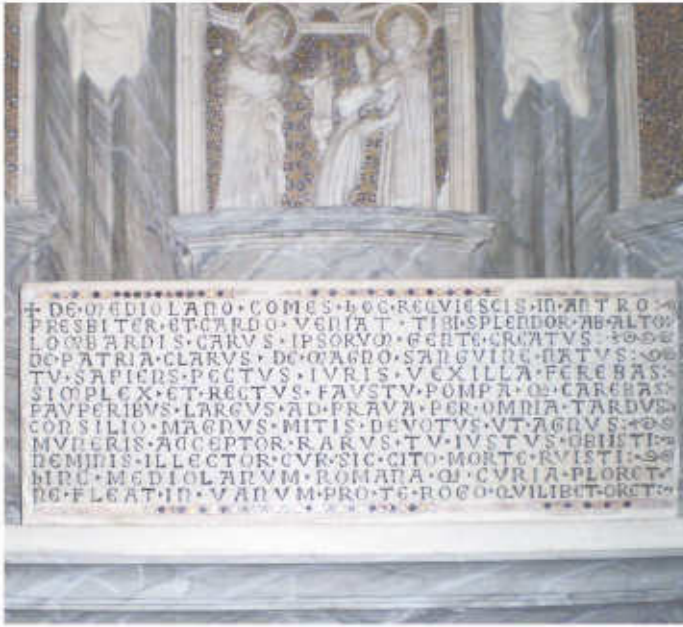 ✢ DE·MEDIOLANO·COMES·hOC·REQVIESCIS·IN·ANTRO:
PRESBITER·ET·CARDO·VENIAT·TIBI·SPLENDOR·AB·ALTO
LOMBARDIS·CARVS·IPSORVM·GENTE·CREATVS:
DE·PATRIA·CLARVS·DE·MAGNO·SANGVINE·NATVS:
TV·SAPIENS·PECTVS·IVRIS·VEXILLA·FEREBAS:
SIMPLEX·ET·RECTVS·FAVSTV·POMPA·Q·CAREBAS
PAVPERIBVS·LARGVS·AD·PRAVA·PER·OMNIA·TARDVS
CONSILIO·MAGNVS·MITIS·DEVOTVS·VT·AGNVS:
MVNERIS·ACCEPTOR·RARVS·TV·IVSTVS·OBIISTI:
NEMINIS·ILLECTOR·CVR·SIC·CITO·MORTE·RVISTI:
hINC·MEDIOLANVM·ROMANA·Q·CVRIA·PLORET
NE·FLEAT·IN·VANVM·PRO·TE·ROGO·QVILIBET·ORET: